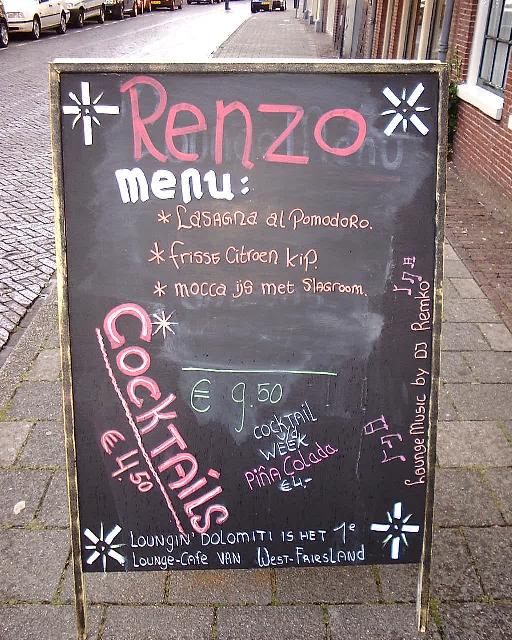 Renzo
menu:
* LASAGNA al Pomodoro.
* frisse Citroen kip.
* mocca ijs met Slagroom.
€ 9.50
COCKTAILS
€ 4,50
COCKTAIL
v/d
WEEK
PIÑA Colada
€ 4,-
Lounge Music by DJ Remko
LOUNGIN' DOLOMITI IS HET 1e
LOUNGE-CAFE VAN WEST-FRIESLAND